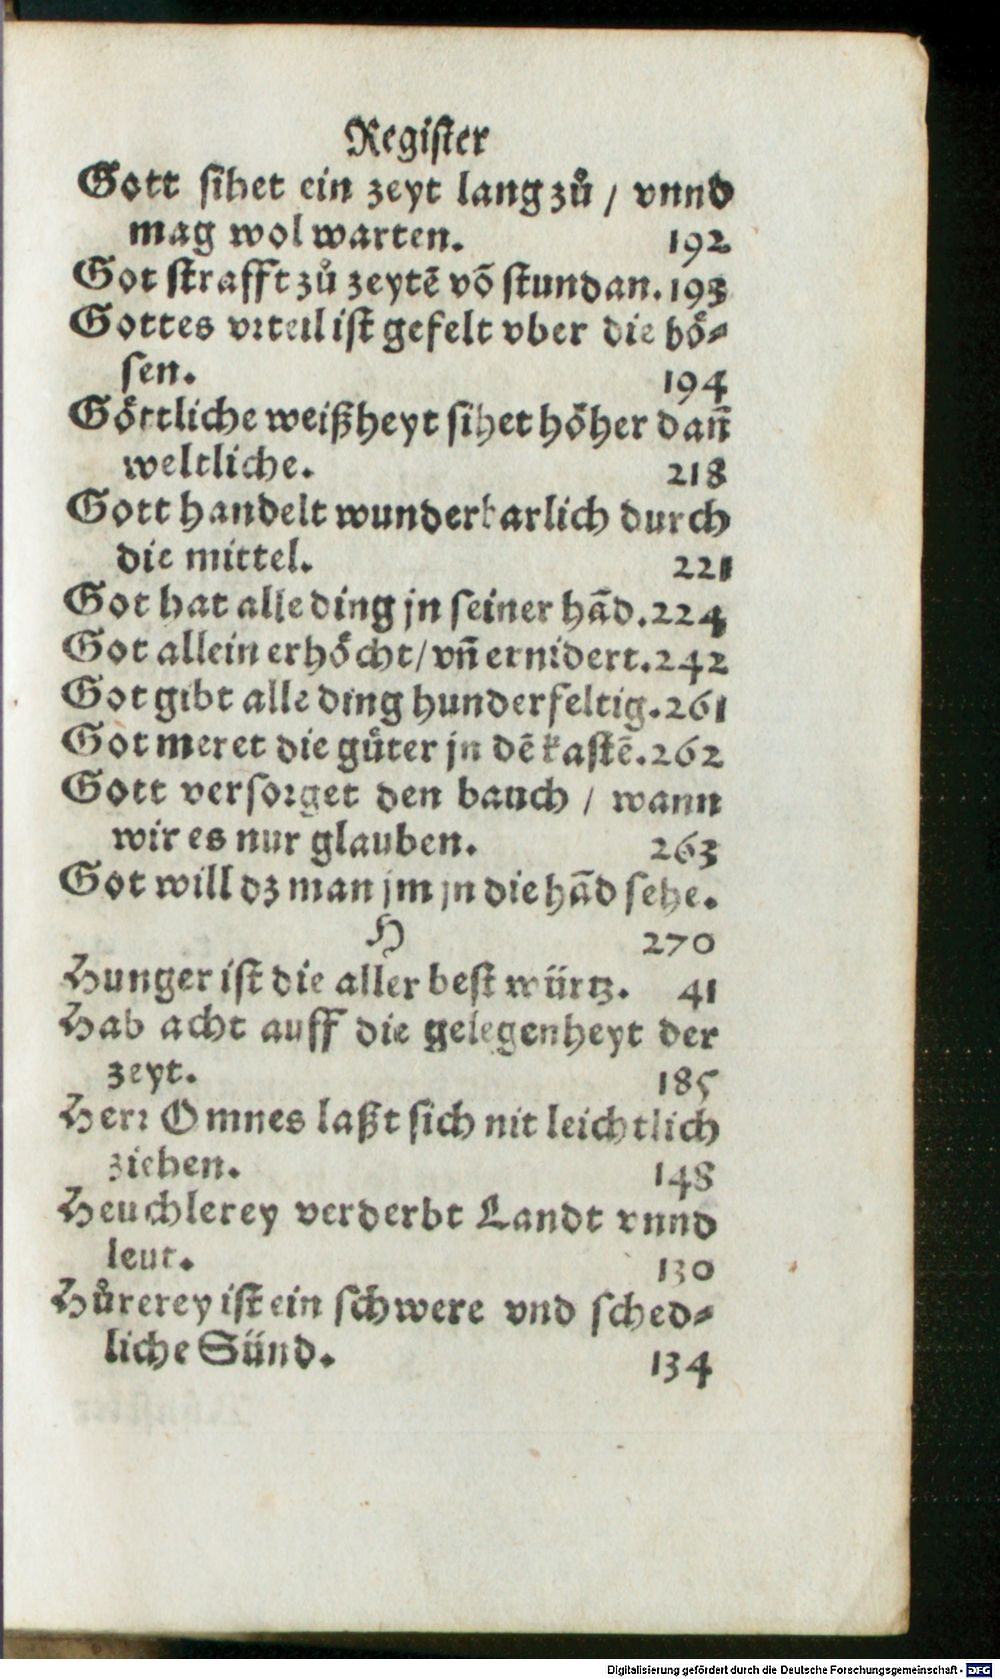 Register
Gott sihet ein zeyt lang zů / vnnd
mag wol warten. 192
Got strafft zů zeytē võ stund an. 193
Gottes vrteil ist gefelt vber die bö⸗
sen. 194
Göttliche weißheyt sihet höher dañ
weltliche. 218
Gott handelt wunderbarlich durch
die mittel. 221
Got hat alle ding jn seiner hãd. 224
Got allein erhöcht / vñ ernidert. 242
Got gibt alle ding hunderfeltig. 261
Got meret die güter jn dē kastē. 262
Gott versorget den bauch / wann
wir es nur glauben. 263
Got will dz man jm jn die hãd sehe.
H 270
Hunger ist die aller best würtz. 41
Hab acht auff die gelegenheyt der
zeyt. 185
Herr Omnes laßt sich nit leichtlich
ziehen. 148
Heuchlerey verderbt Landt vnnd
leut. 130
Hůrerey ist ein schwere vnd sched⸗
liche Sünd. 134
Digitalisierung gefördert durch die Deutsche Forschungsgemeinschaft - DFG